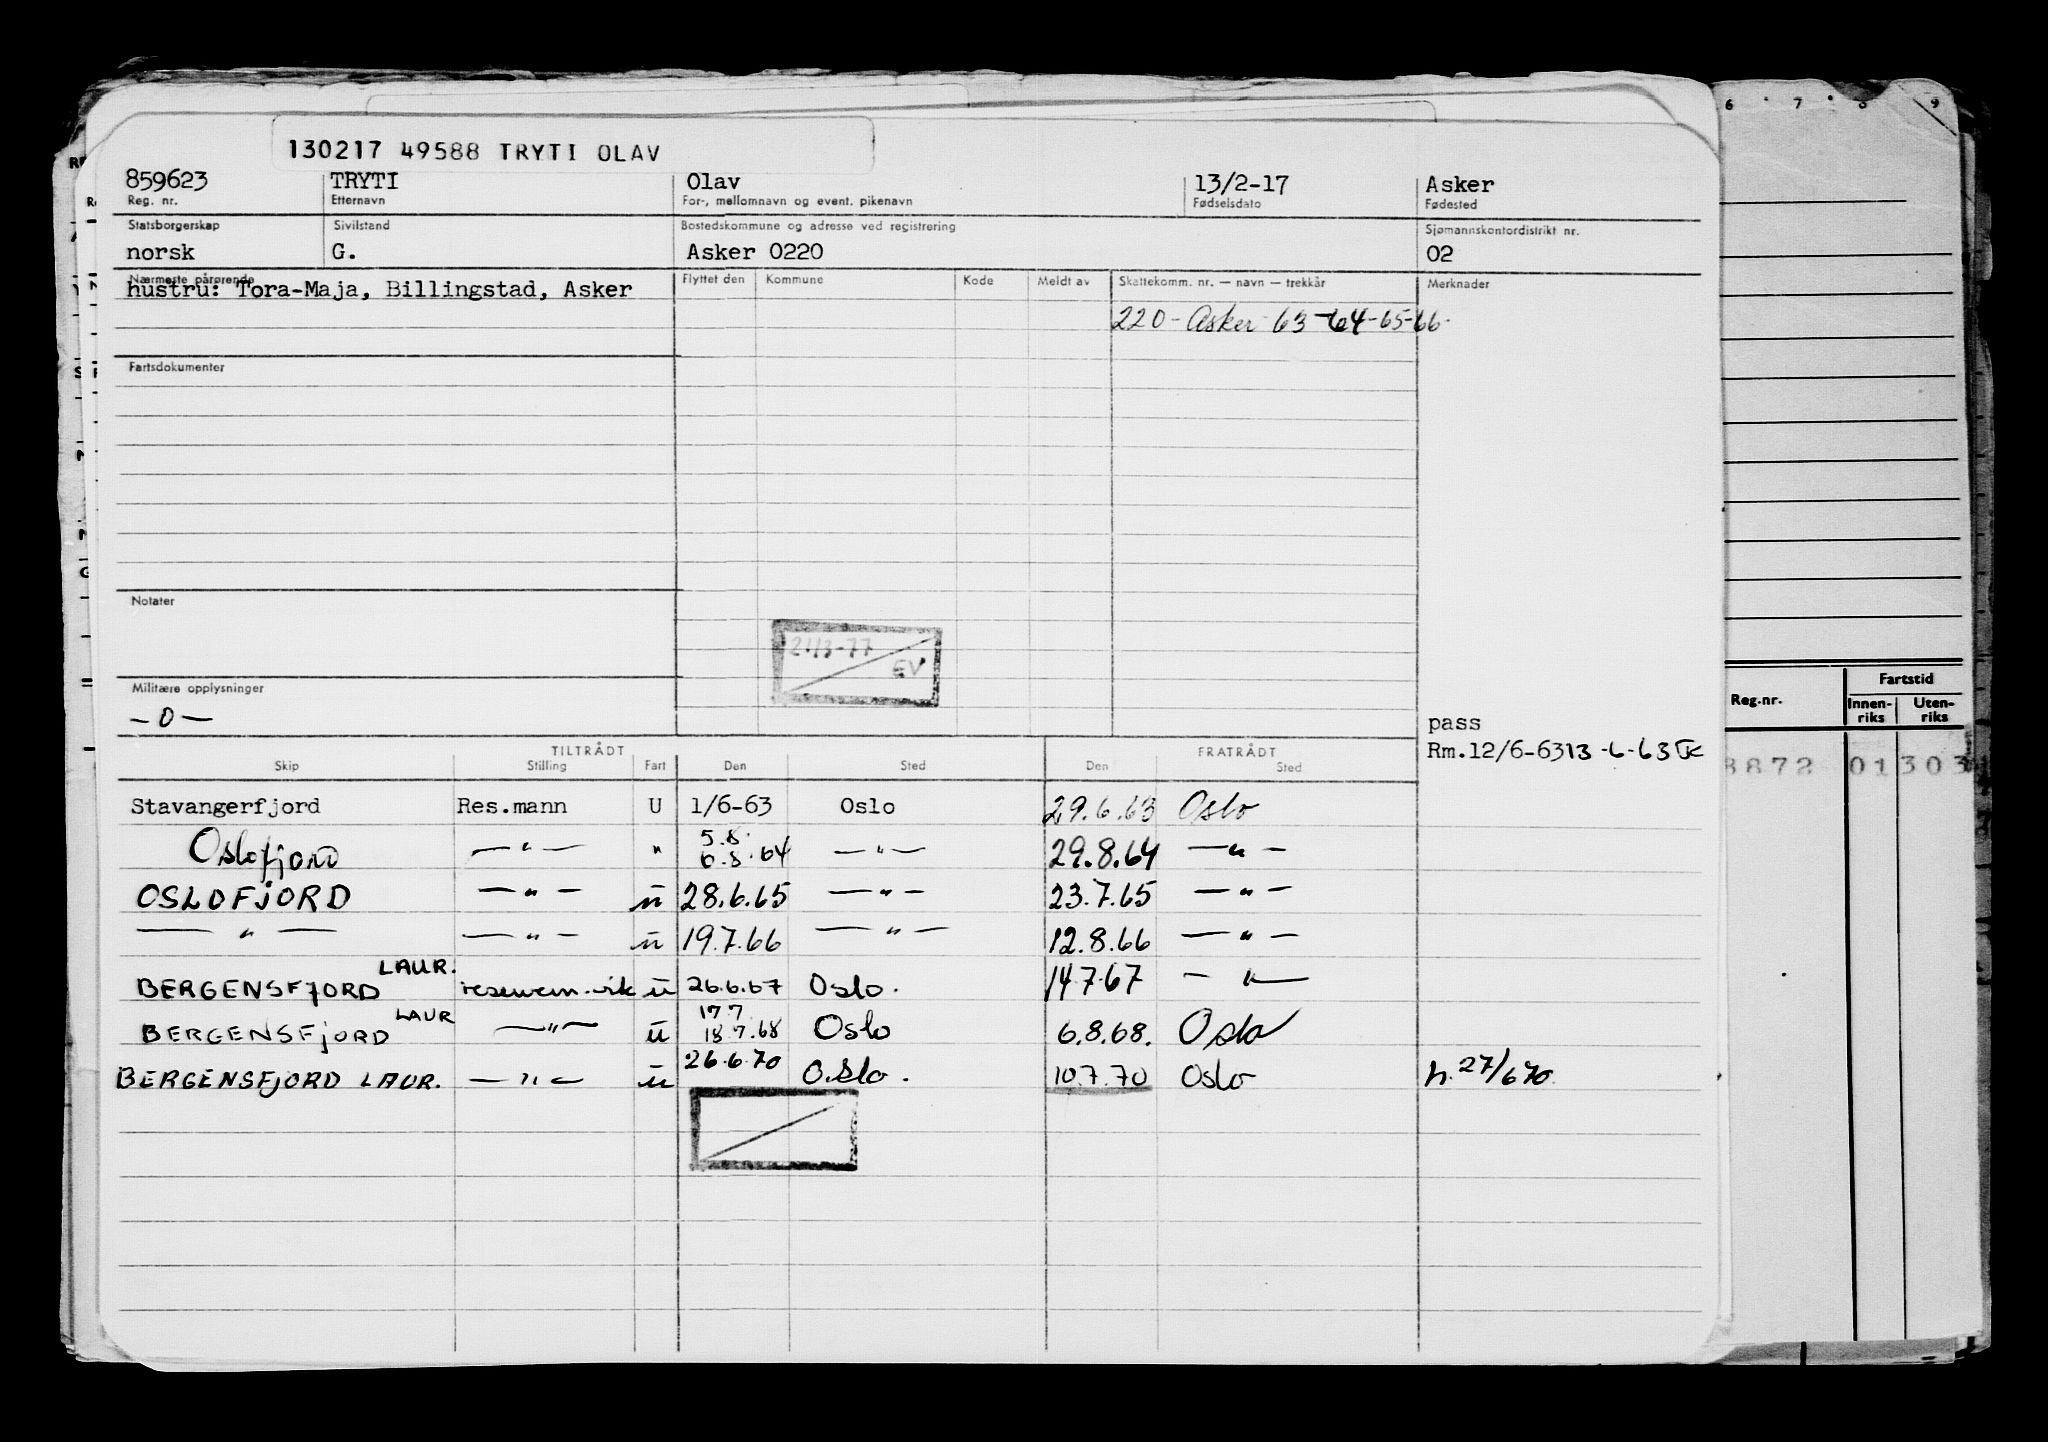 130217 49588 TRYTI OLAV
859623 TRYTI Olav 13/2-17 Asker
Reg. nr. Etternavn For-, mellomnavn og event. pikenavn Fødselsdato Fødested
Statsborgerskap Sivilstand Bostedskommune og adresse ved registrering Sjømannskontordistrikt nr.
norsk G. Asker 0220 02
Nærmeste pårørende Flyttet den Kommune Kode Meldt av Skattekomm. nr. — navn — trekkår Merknader
hustru: Tora-Maja, Billingstad, Asker
220 - Asker 63-64-65-66
Fartsdokumenter
Notater
21/3-77
EV
Militære opplysninger
— 0 —
pass
Rm.12/6-63 13-6-63
TILTRÅDT FRATRÅDT
Skip Stilling Fart Den Sted Den Sted
Stavangerfjord Res.mann U 1/6-63 Oslo 29.6.63 Oslo
5.8.
Oslofjord — " — " 6.8.64 — " — 29.8.64 — " —
OSLOFJORD — " — u 28.6.65 — " — 23.7.65 — " —
— " — — " — u 19.7.66 — " — 12.8.66 — " —
BERGENSFJORD LAUR. reservem.vik u 26.6.67 Oslo. 14.7.67 — " —
17.7
BERGENSFJORD LAUR — " — u 18.7.68 Oslo 6.8.68. Oslo
BERGENSFJORD LAUR. — " — u 26.6.70 Oslo. 10.7.70 Oslo h. 27/6 70.
6 7 8 9
Reg.nr. Fartstid
Innen-riks Uten-riks
8872 01 303